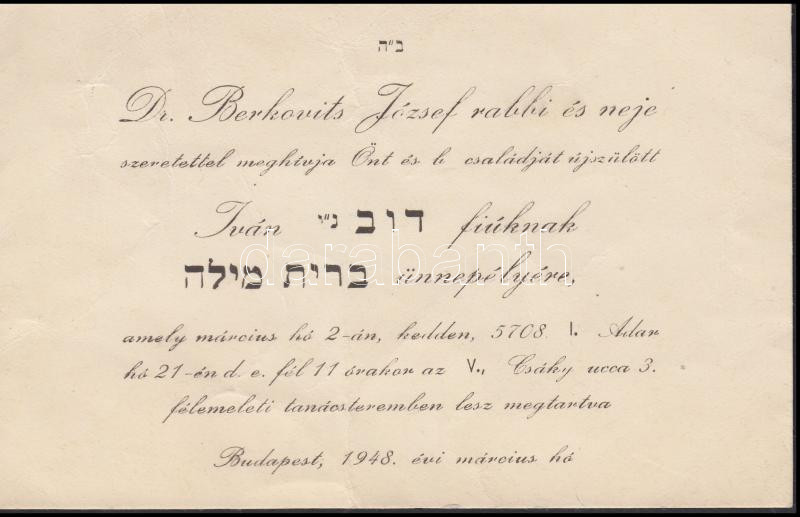 ב"ה
Dr. Berkovits József rabbi és neje
szeretettel meghívja Önt és b családját újszülött
Iván דוב נ"י fiúknak
ברית מילה ünnepélyére,
amely március hó 2-án, kedden, 5708. I. Adar
hó 21-én d. e. fél 11 órakor az V., Csáky ucca 3.
félemeleti tanácsteremben lesz megtartva
Budapest, 1948. évi március hó
darabanth